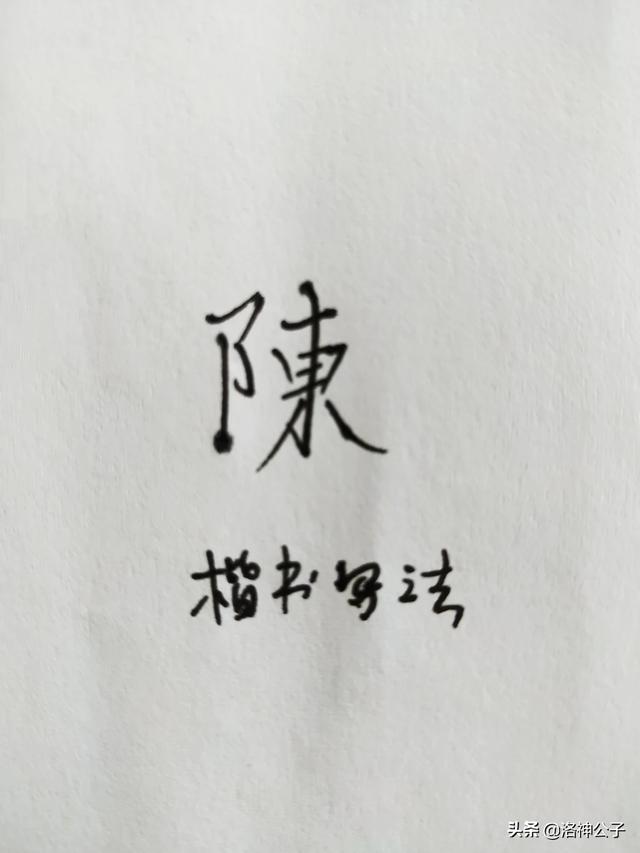 陳
楷书写法
头条 @洛神公子